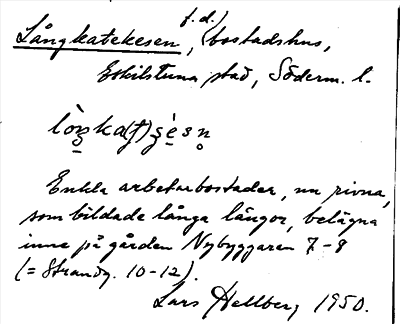 Långkatekesen, (f.d.) bostadshus,
Eskilstuna stad, Söderm. l.
Enkla arbetarbostäder, nu rivna,
som bildade långa längor, belägna
inne på gården Nybyggaren 7-8
(= Strandg. 10-12).
Lars Hellberg 1950.